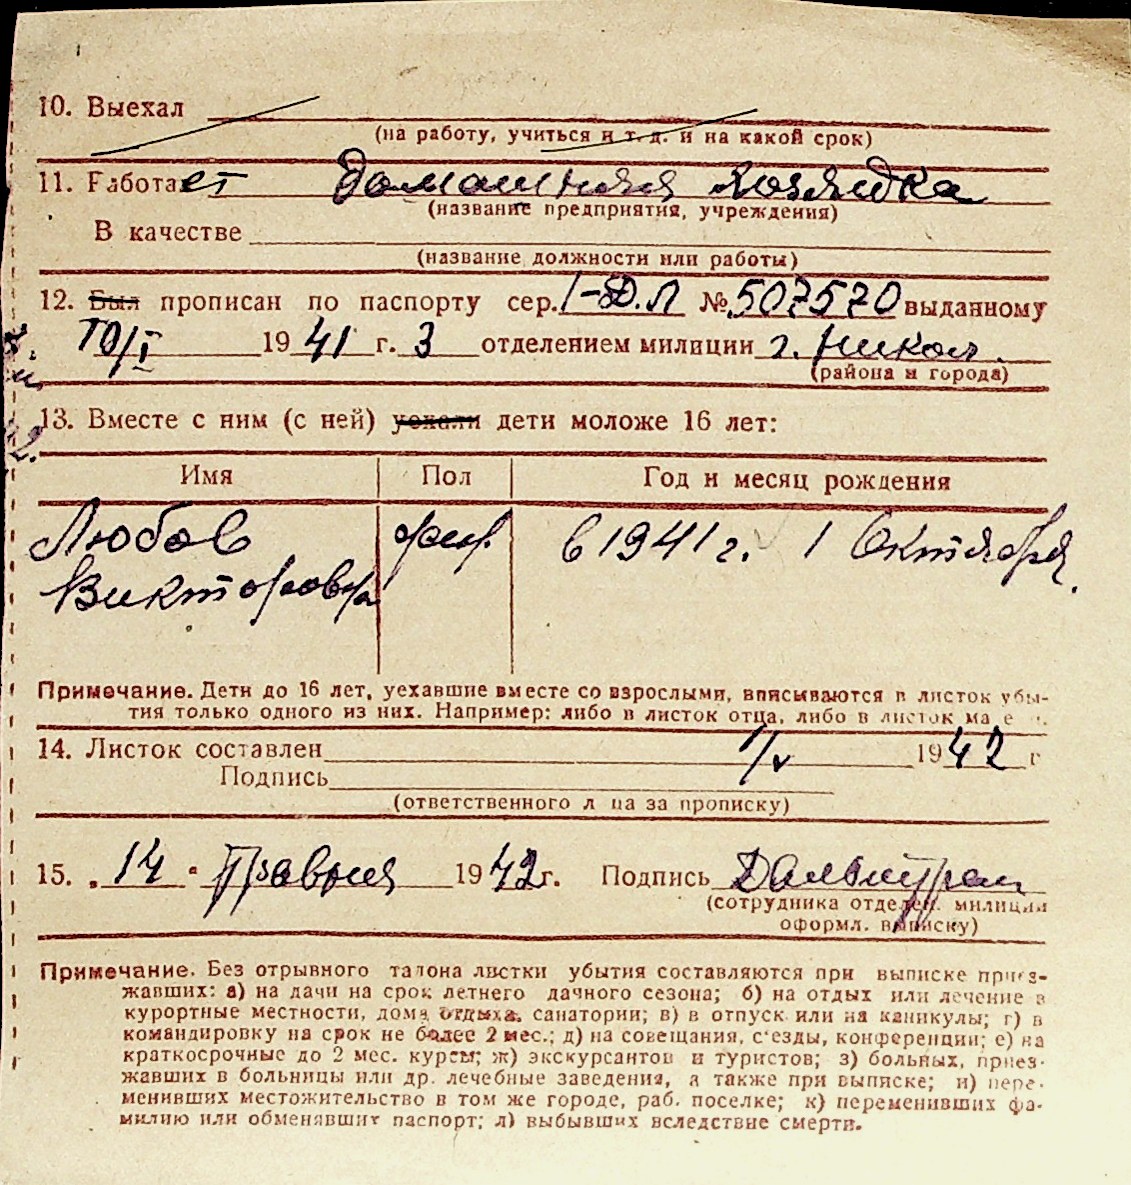 10. Выехал
(на работу, учиться и т. д. и на какой срок)
11. Работает домашняя хозяйка
(название предприятия, учреждения)
В качестве
(название должности или работы)
12. Был прописан по паспорту сер. I-Д.Л № 507570 выданному
10/I 1941 г. 3 отделением милиции г. Никол.
(района и города)
13. Вместе с ним (с ней) уехали дети моложе 16 лет:
Имя Пол Год и месяц рождения
Любов в 1941 г. 1 Октября.
Викторовна
Примечание. Дети до 16 лет, уехавшие вместе со взрослыми, вписываются в листок убы-
тия только одного из них. Например: либо в листок отца, либо в листок ма е
14. Листок составлен 1/V 1942 г
Подпись
(ответственного л ца за прописку)
15. „14" Травня 1942 г. Подпись
(сотрудника отделен. милиции
оформл. выписку)
Примечание. Без отрывного талона листки убытия составляются при выписке приез-
жавших: а) на дачи на срок летнего дачного сезона; б) на отдых или лечение в
курортные местности, дома отдыха, санатории; в) в отпуск или на каникулы; г) в
командировку на срок не более 2 мес.; д) на совещания, съезды, конференции; е) на
краткосрочные до 2 мес. курсы; ж) экскурсантов и туристов; з) больных, приез-
жавших в больницы или др. лечебные заведения, а также при выписке; и) пере-
менивших местожительство в том же городе, раб. поселке; к) переменивших фа-
милию или обменявших паспорт; л) выбывших вследствие смерти.